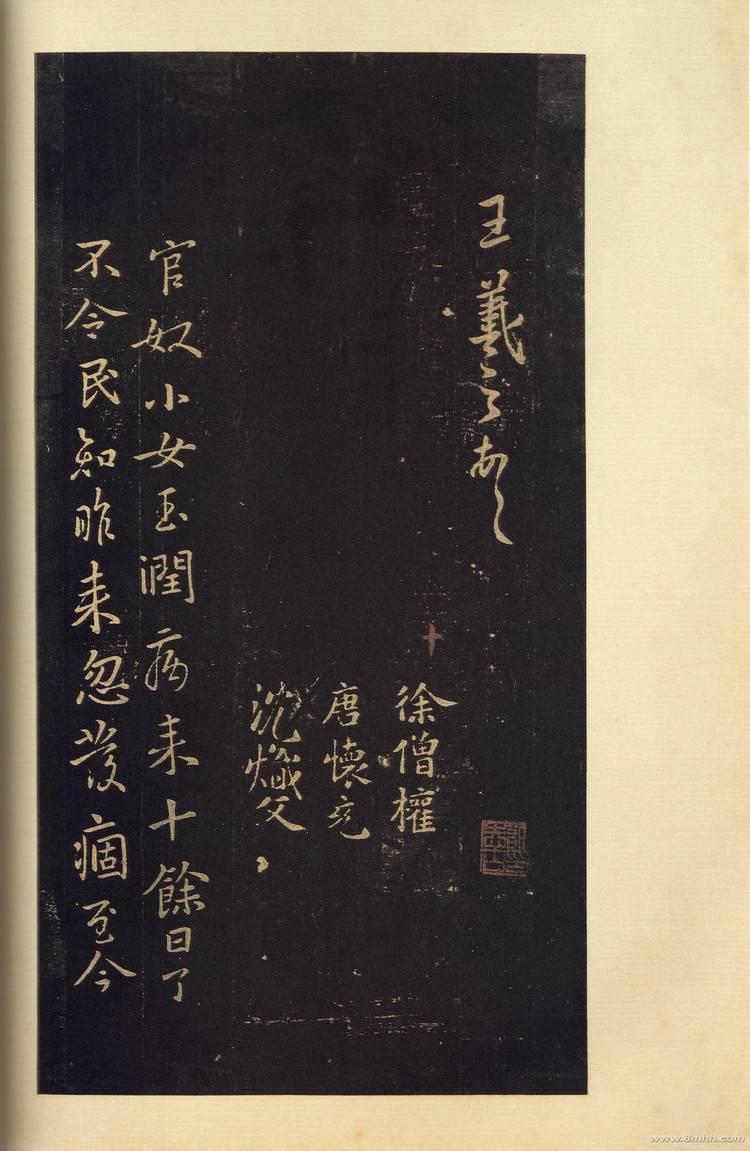 王羲之頓
徐僧權
唐懷充
沈熾文
官奴小女玉潤病来十餘日了
不令民知昨来忽發痼至今
www.8mhh.com